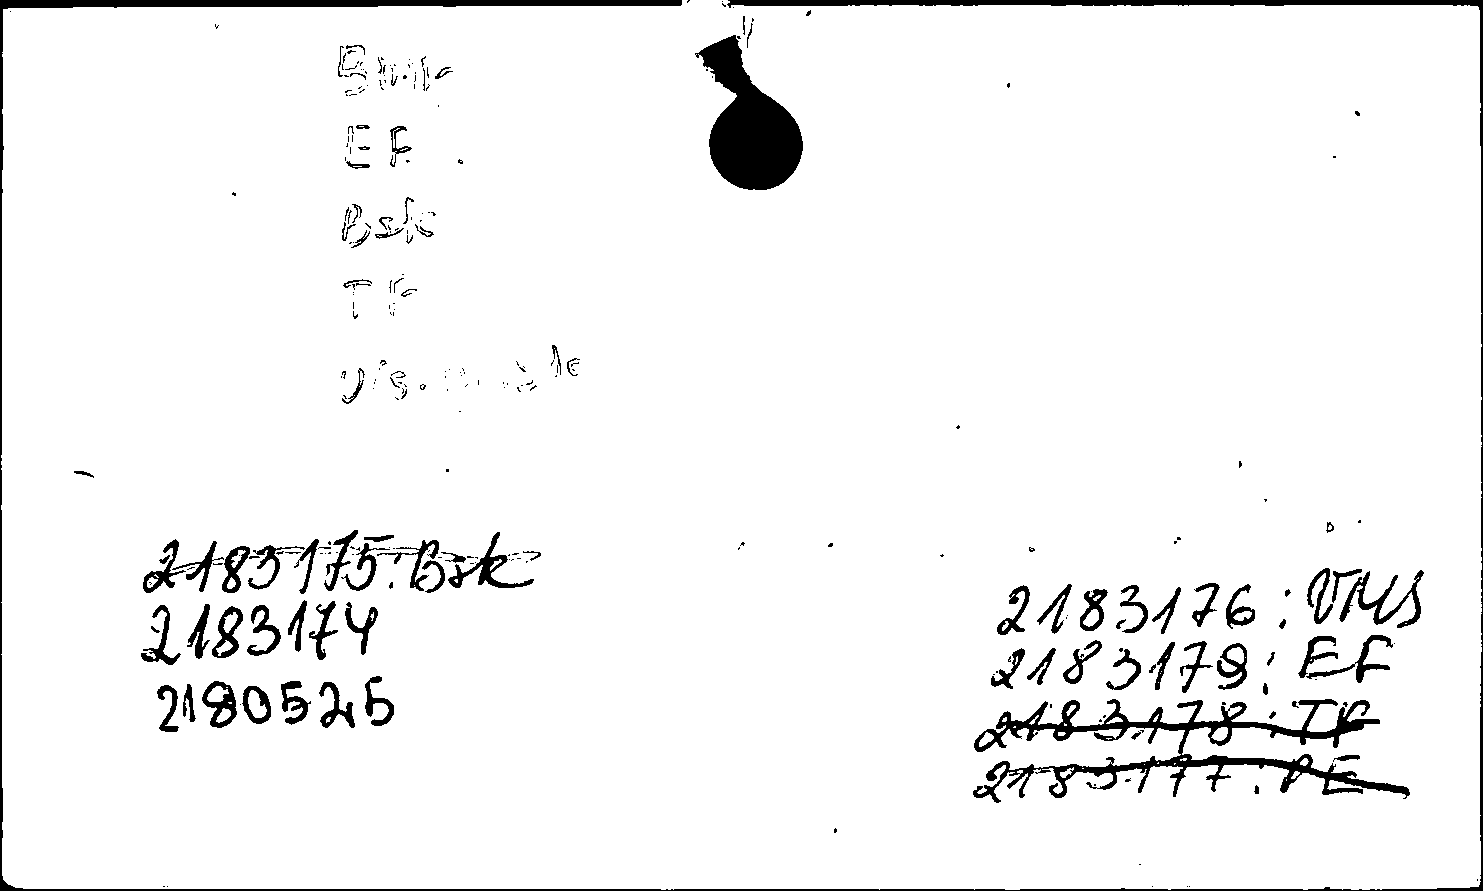 EF
Bsk
TF
2183175: Bsk
2183174
2180525
2183176: VMS
2183179: EF
2183178: TF
2183177: PE